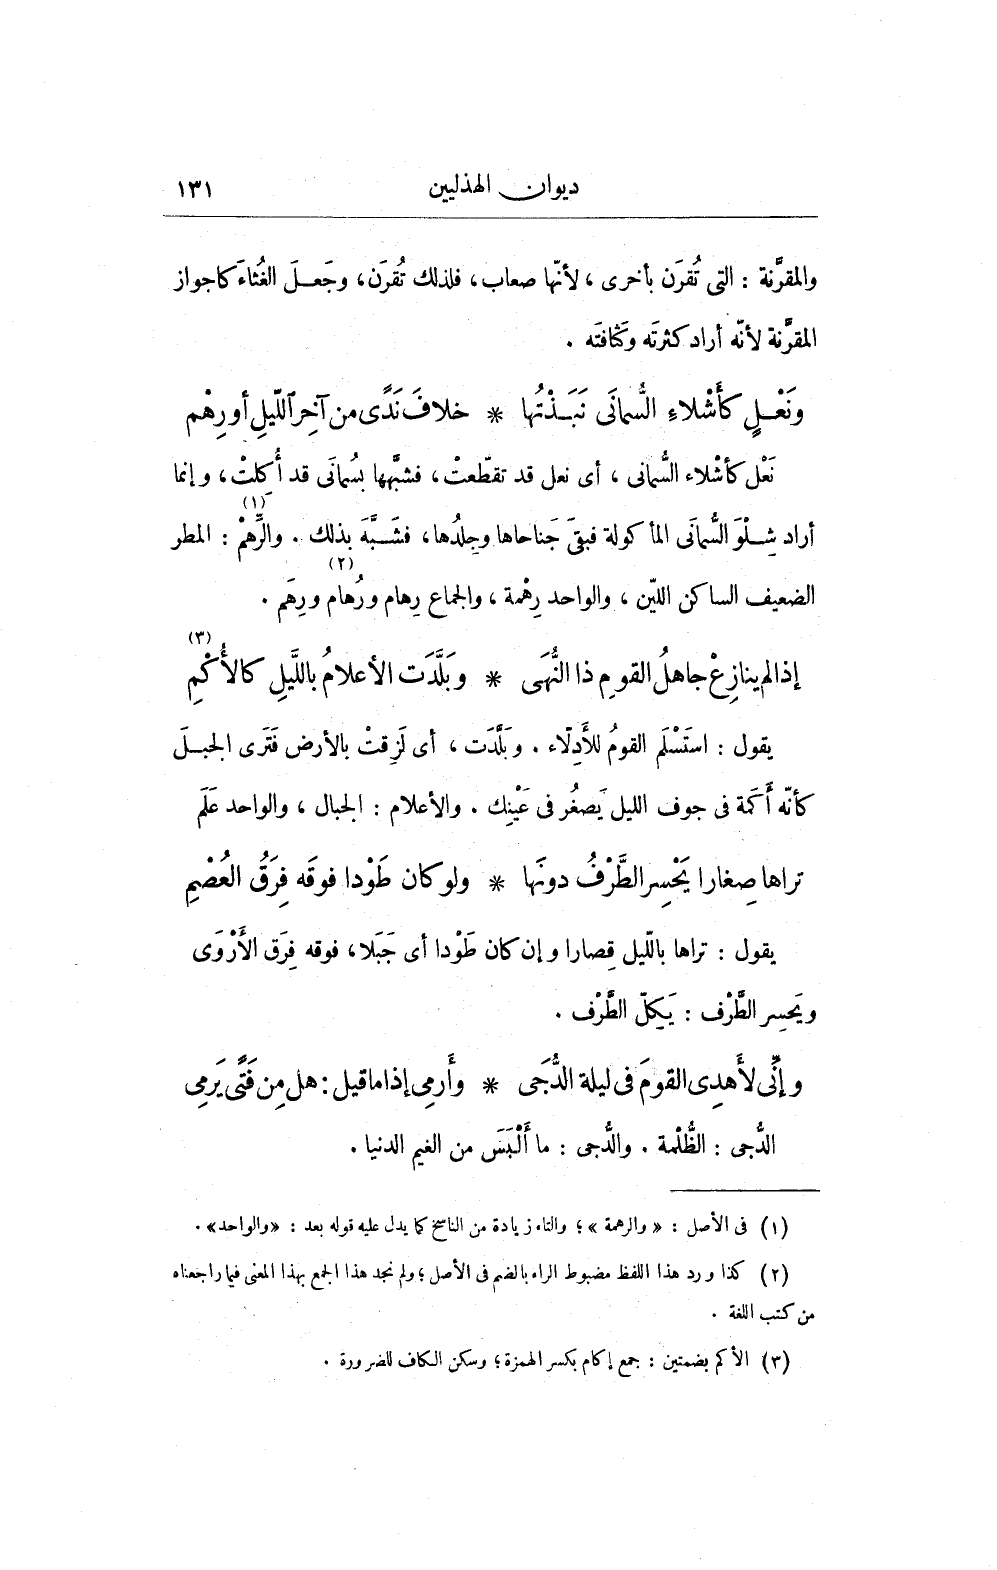 ديوان الهذليين ١٣١
والمقرَّنة : التى تُقرَن بأخرى ، لأنّها صعاب ، فلذلك تُقرَن، وجَعـلَ الغُثاءَ كاجواز
المقرَّنة لأنّه أراد كثرتَه وكَثافتَه .
ونَعْـلٍ كأَشْلاءِ السُّمانَى نَبَـذْتُها * خلافَ نَدًى من آخِر ٱللّيلِ أو رِهْم
نَعْل كأشْلاء السُّمانى ، أى نعل قد تقطّعتْ، فشبَّهها بسُمانَى قد أُكلتْ، وإنما
(١)
أراد شِـلْوَ السُّمانَى المأكولة فبقىَ جَناحاها وجِلدُها، فشَـبَّهَ بذلك . والرِّهمْ : المطر
(٢)
الضعيف الساكن الليّن ، والواحد رِهْمة ، والجماع رِهام ورُهام ورِهَم .
(٣)
إذا لم ينازِعْ جاهلُ القومِ ذا النُّهَى * وبَلَّدَت الأعلامُ باللَّيلِ كالأُكْمِ
يقول : استَسْلَم القومُ للأَدِلّاء . وبَلَّدَت ، أى لَزِقتْ بالأرض فَتَرى الجبـلَ
كأنّه أَكَمة فى جوف الليل يَصغُر فى عَيْنِك . والأعلام : الجبال ، والواحد عَلَم
تراها صِغارا يَحْسِر الطَّرْفُ دونَها * ولو كان طَوْدا فوقَه فِرَقُ العُصْمِ
يقول : تراها باللّيل قِصارا وإن كان طَوْدا أى جَبَلا، فوقه فِرَق الأَرْوَى
ويَحسِر الطَّرْف : يَكِلّ الطَّرْف .
وإنِّى لأَهدِى القومَ فى ليلة الدُّجَى * وأَرمِى إذا ما قيل : هل مِن فَتًى يَرمِى
الدُّجى : الظُّلْمة . والدُّجى : ما أَلْبَسَ من الغيم الدنيا .
(١) فى الأصل : « والرهمة »؛ والتاء زيادة من الناسخ كما يدل عليه قوله بعد : «والواحد» .
(٢) كذا ورد هذا اللفظ مضبوط الراء بالضم فى الأصل ؛ ولم نجد هذا الجمع بهذا المعنى فيما راجعناه
من كتب اللغة .
(٣) الأكم بضمتين : جمع إكام بكسر الهمزة؛ وسكن الكاف للضرورة .